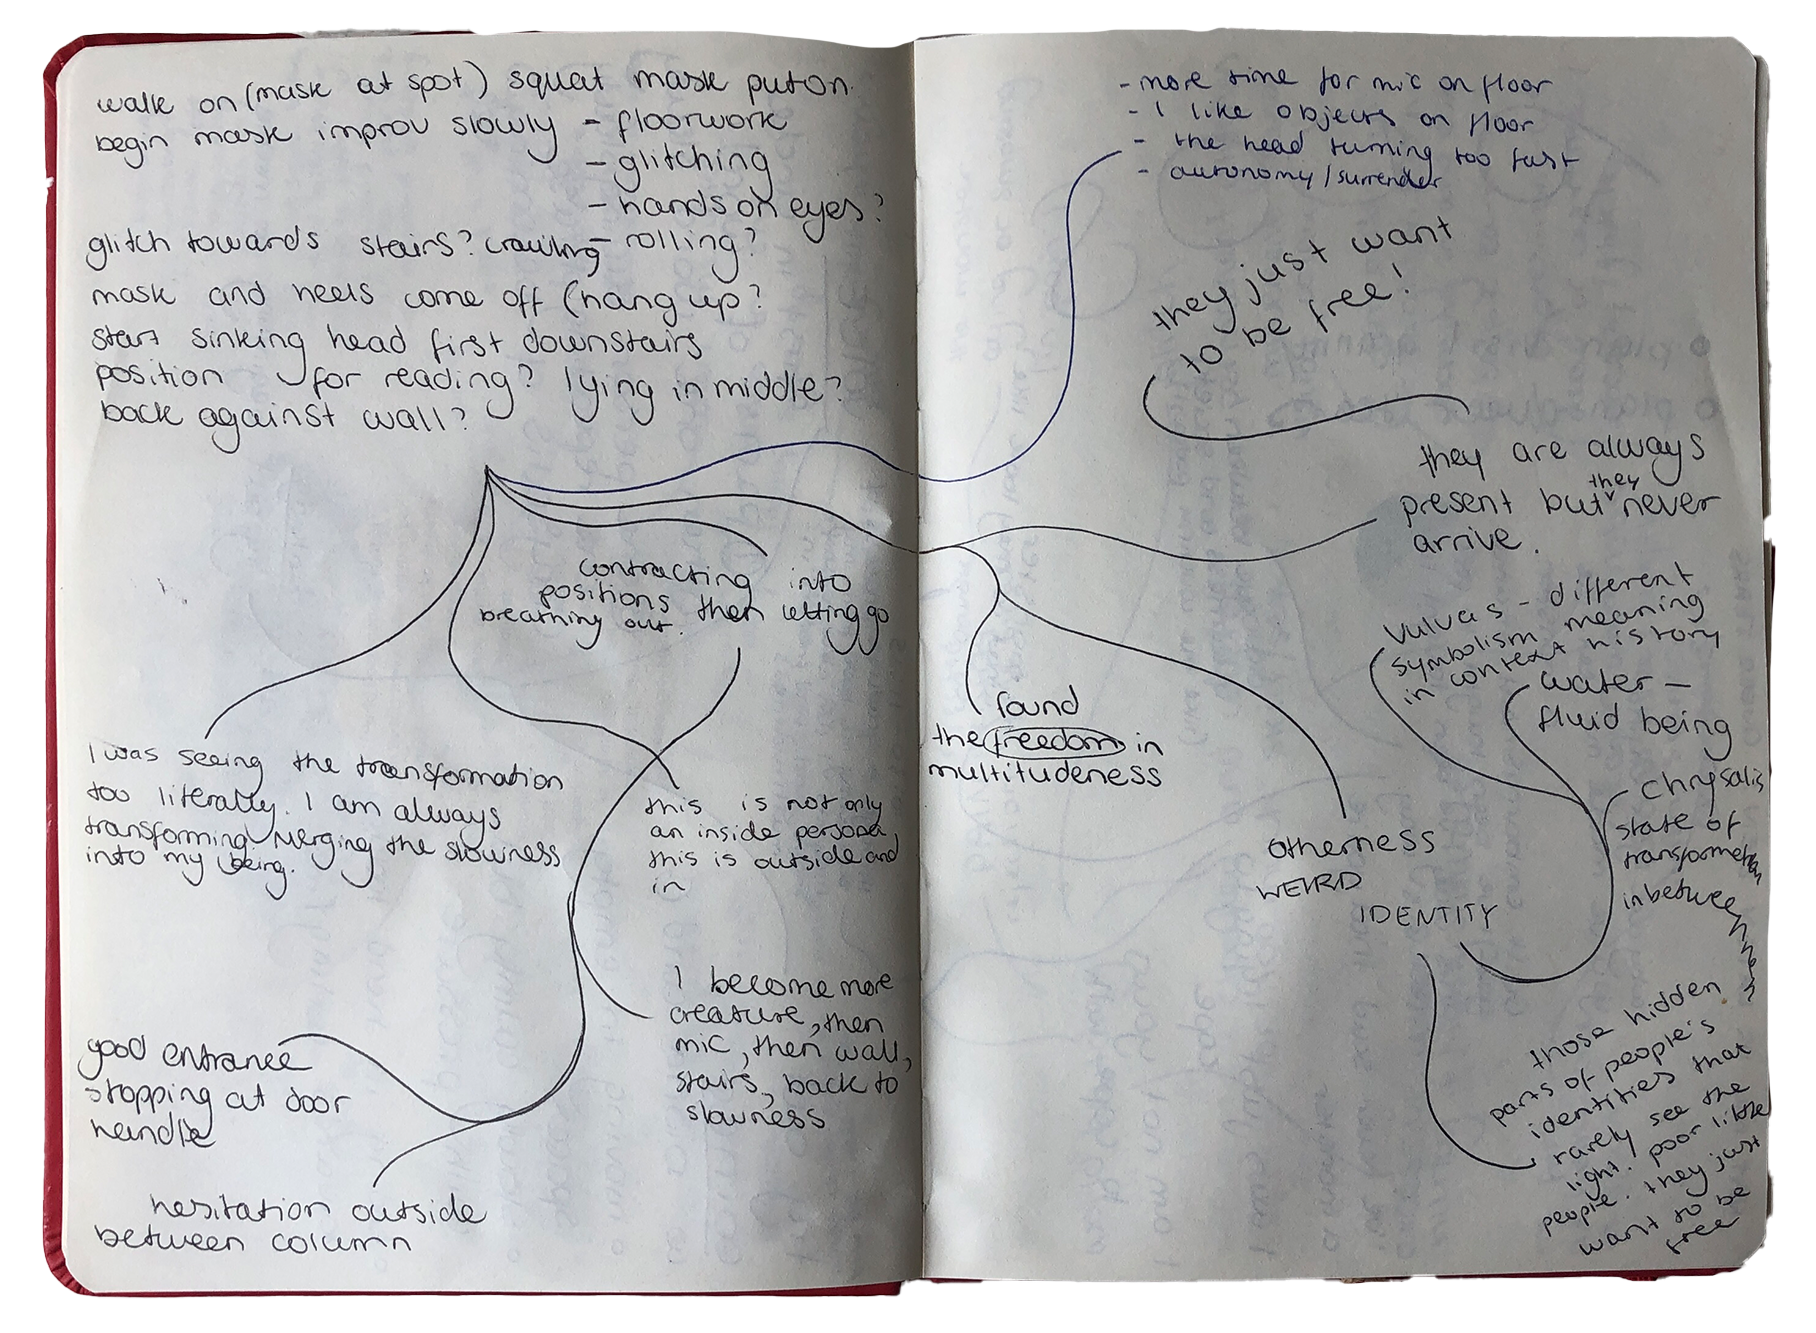 walk on (mask at spot) squat mask put on.
begin mask improv slowly - floorwork
- glitching
- hands on eyes?
glitch towards stairs? crawling - rolling?
mask and heels come off (hang up?
start sinking head first downstairs
position for reading? lying in middle?
back against wall?
contracting into
positions then letting go
breathing out.
I was seeing the transformation
too literally. I am always
transforming. Merging the slowness
into my being.
this is not only
an inside persona,
this is outside and
in
I become more
creature, then
mic, then wall,
stairs, back to
slowness
good entrance
stopping at door
handle
hesitation outside
between column
- more time for mic on floor
- I like objects on floor
- the head turning too fast
- autonomy/surrender
they just want
to be free!
they are always
they
present but never
arrive.
found
the freedom in
multitudeness
otherness
WEIRD
IDENTITY
vulvas - different
symbolism meaning
in context history
water -
fluid being
chrysalis
state of
transformation
inbetween
those hidden
parts of people's
identities that
rarely see the
light! poor little
people. they just
want to be
free